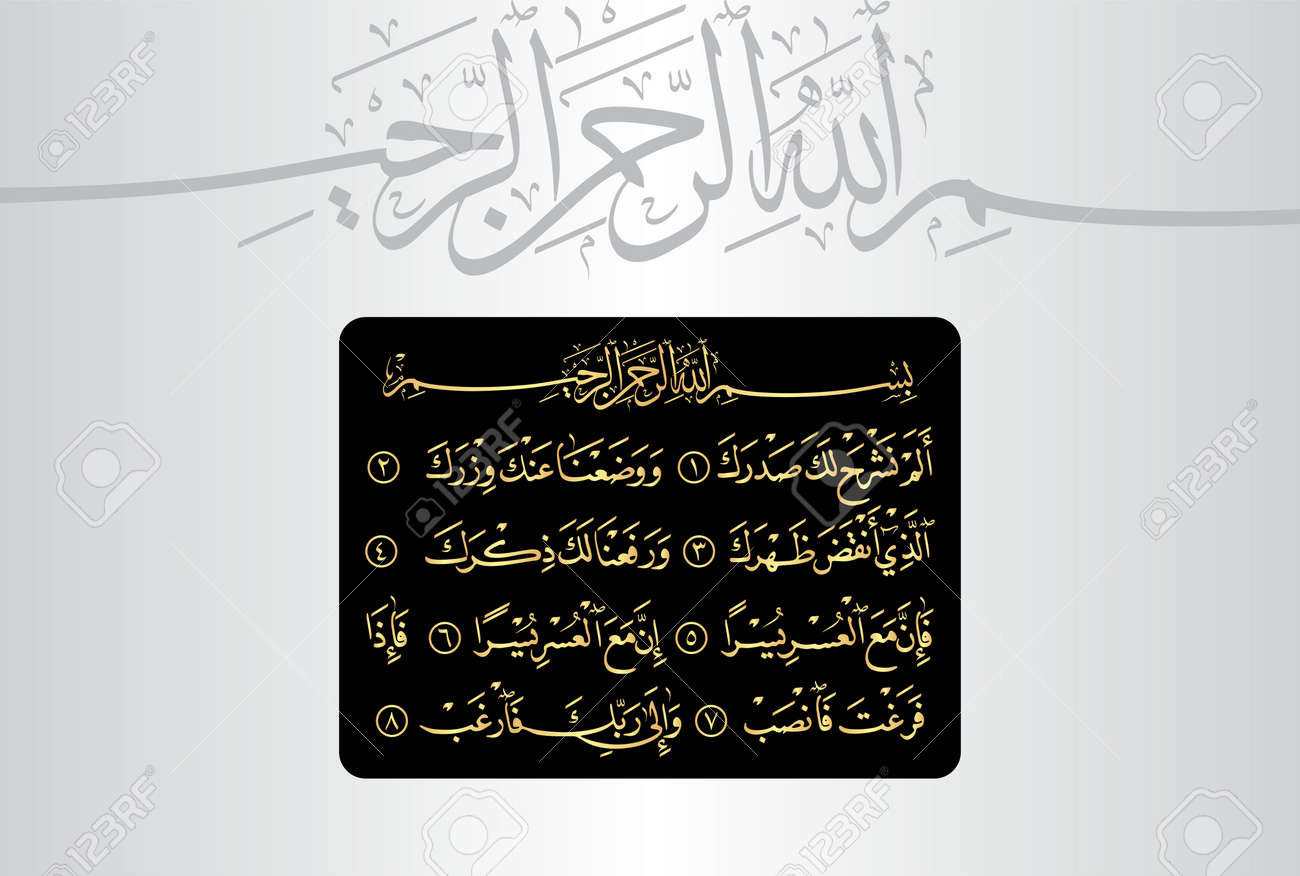 بسم الله الرحمن الرحيم
بِسْمِ اللَّهِ الرَّحْمَٰنِ الرَّحِيمِ
أَلَمْ نَشْرَحْ لَكَ صَدْرَكَ ١ وَوَضَعْنَا عَنْكَ وِزْرَكَ ٢
الَّذِي أَنْقَضَ ظَهْرَكَ ٣ وَرَفَعْنَا لَكَ ذِكْرَكَ ٤
فَإِنَّ مَعَ الْعُسْرِ يُسْرًا ٥ إِنَّ مَعَ الْعُسْرِ يُسْرًا ٦ فَإِذَا
فَرَغْتَ فَانْصَبْ ٧ وَإِلَىٰ رَبِّكَ فَارْغَبْ ٨
123RF